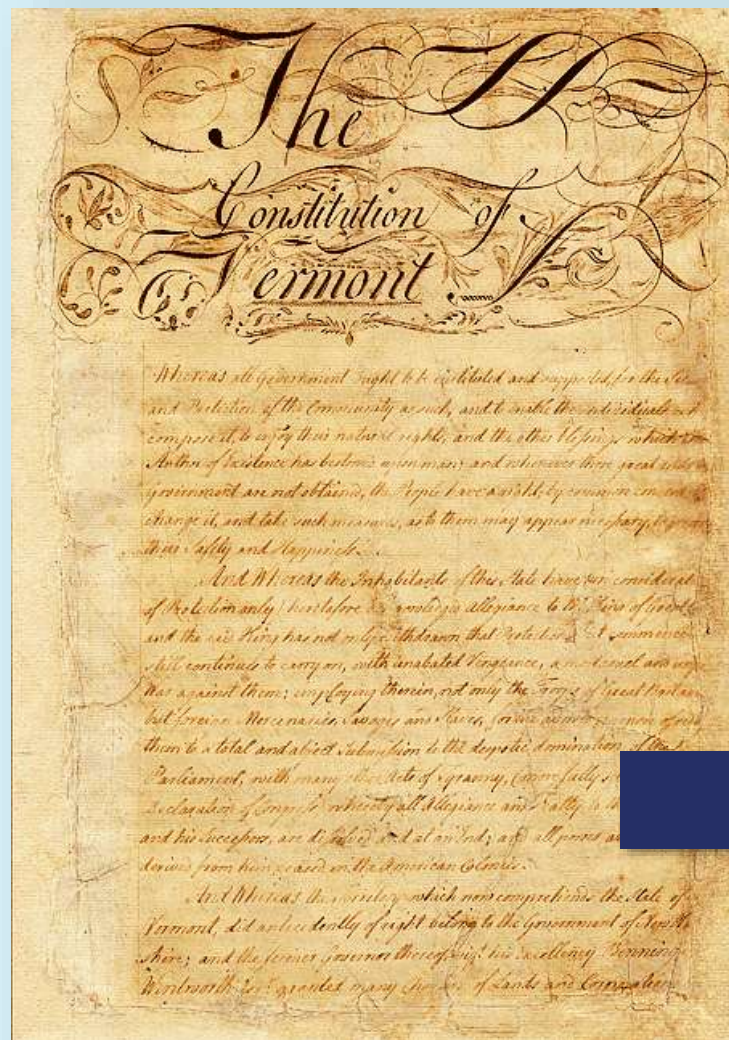 The
Constitution of
Vermont
Whereas all Government ought to be instituted and supported, for the
and Protection of the Community as such, and to enable the individuals
compose it, to enjoy their natural rights, and the other blessings which the
Author of Existence has bestowed upon man; and whenever those great
Government are not obtained, the People have a right, by common consent to
change it, and take such measures, as to them may appear necessary, to
their Safety and Happiness.
And Whereas the Inhabitants of this State have in
of Protection only heretofore acknowledged Allegiance to the King of
and the said King has not only withdrawn that Protection but commenced
still continues to carry on, with unabated Vengeance, a most cruel and
War against them; employing therein, not only the Troops of Great Britain
but foreign Mercenaries, Savages and Slaves, for the avowed purpose of
them to a total and abject Submission to the despotic domination of the
Parliament, with many other Acts of tyranny, (more fully
Declaration of Congress) whereby all Allegiance and Fealty to
and his Successors, are dissolved and at an End; and all power
derived from him ceased in the American Colonies.
And Whereas the Territory which now comprehends the State of
Vermont, did antecedently of right belong to the Government of New
shire; and the former Governor thereof, his Excellency Benning
Wentworth granted many of Lands and